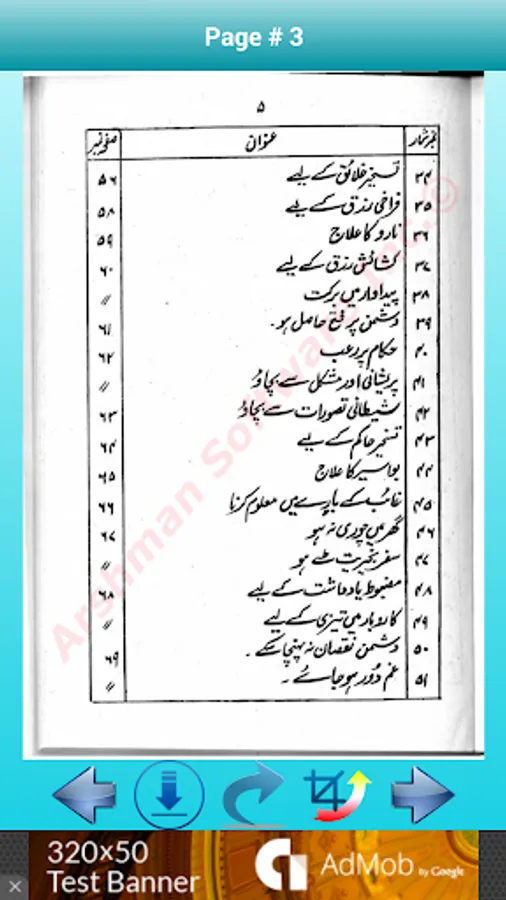 Page # 3
۵
نمبر شمار عنوان صفحہ نمبر
۳۴ تسخیر خلائق کے لیے ۵۶
۳۵ فراخی رزق کے لیے ۵۸
۳۶ نارو کا علاج ۵۹
۳۷ کشائش رزق کے لیے ۶۰
۳۸ پیداوار میں برکت //
۳۹ دشمن پر فتح حاصل ہو۔ ۶۱
۴۰ حکام پر رعب ۶۲
۴۱ پریشانی اور مشکل سے بچاؤ //
۴۲ شیطانی تصورات سے بچاؤ ۶۳
۴۳ تسخیر حاکم کے لیے ۶۴
۴۴ بواسیر کا علاج ۶۵
۴۵ غائب کے بارے میں معلوم کرنا ۶۶
۴۶ گھر میں چوری نہ ہو ۶۷
۴۷ سفر بخیریت طے ہو //
۴۸ مضبوط یادداشت کے لیے ۶۸
۴۹ کاروبار میں تیزی کے لیے //
۵۰ دشمن نقصان نہ پہنچا سکے۔ ۶۹
۵۱ غم دور ہو جائے۔ //
Arshman Software Inc.©
320×50
Test Banner
AdMob by Google